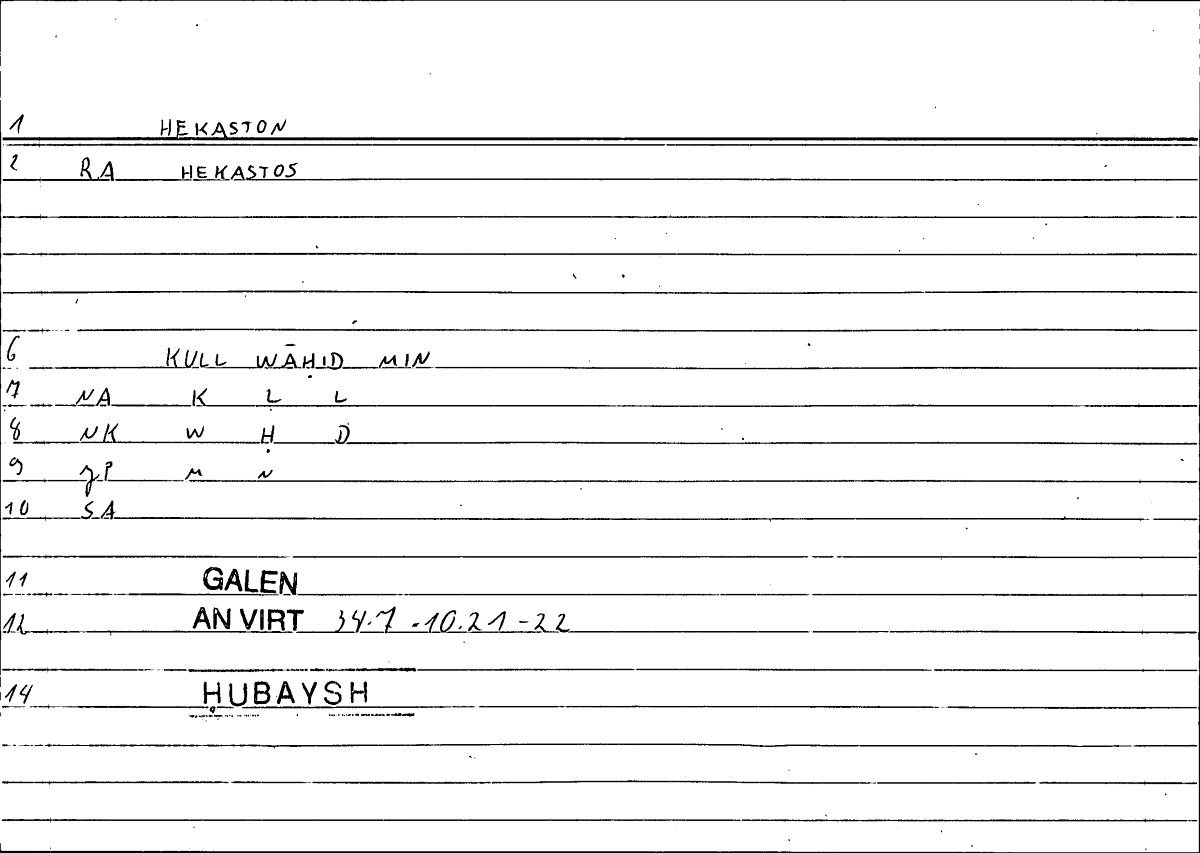 1 HEKASTON
2 RA HEKASTOS
6 KULL WĀḤID MIN
7 NA K L L
8 NK W Ḥ D
9 JP M N
10 SA
11 GALEN
12 AN VIRT 34.7 -10.21-22
14 ḤUBAYSH